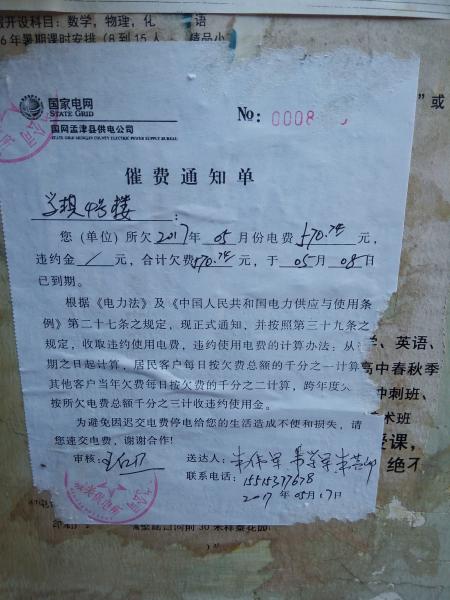 开设科目：数学，物理，化
语
6年暑期课时安排（8到15人
精品小
国家电网
STATE GRID
国网孟津县供电公司
STATE GRID MENGJIN COUNTY ELECTRIC POWER SUPPLY BUREAU
№: 0008
"或
催费通知单
4号楼：
您（单位）所欠2017年05月份电费570.7元，
违约金/元，合计欠费570.7元，于05月08日
已到期。
根据《电力法》及《中国人民共和国电力供应与使用条
例》第二十七条之规定，现正式通知，并按照第三十九条之
规定，收取违约使用电费，违约使用电费的计算办法：从
期之日起计算，居民客户每日按欠费总额的千分之一计算
其他客户当年欠费每日按欠费的千分之二计算，跨年度欠
按所欠电费总额千分之三计收违约使用金。
为避免因迟交电费停电给您的生活造成不便和损失，请
您速交电费，谢谢合作！
学、英语、
高中春秋季
冲刺班、
术班
授课，
绝不
审核：
送达人：
联系电话：15515377678
2017年05月17日